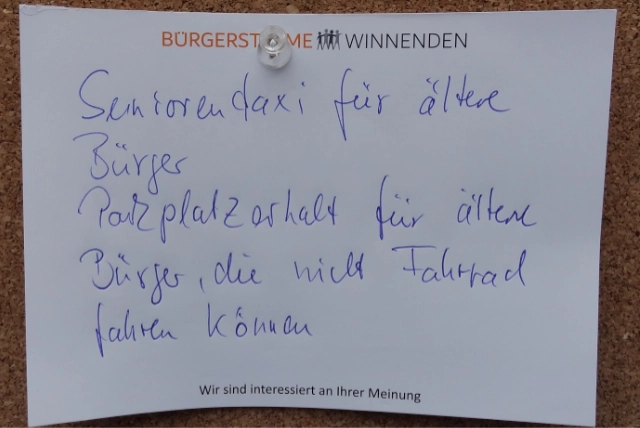 BÜRGERSTIMME WINNENDEN
Seniorentaxi für ältere
Bürger
Parkplatzerhalt für ältere
Bürger, die nicht Fahrrad
fahren können
Wir sind interessiert an Ihrer Meinung